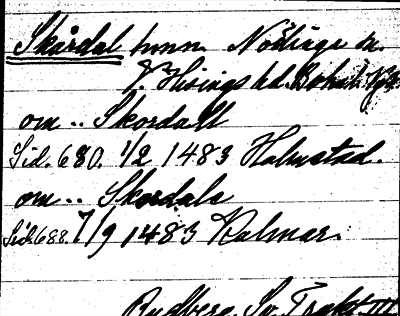 Skårdal hmn. Nödinge sn.
V. Hisings hd. Bohusl. Hfs.
om .. Skordall
Sid. 680. 1/2 1483 Halmstad.
om .. Skordals
Sid. 688. 7/9 1483 Kalmar.
Rydberg, Sv. Trakt. III